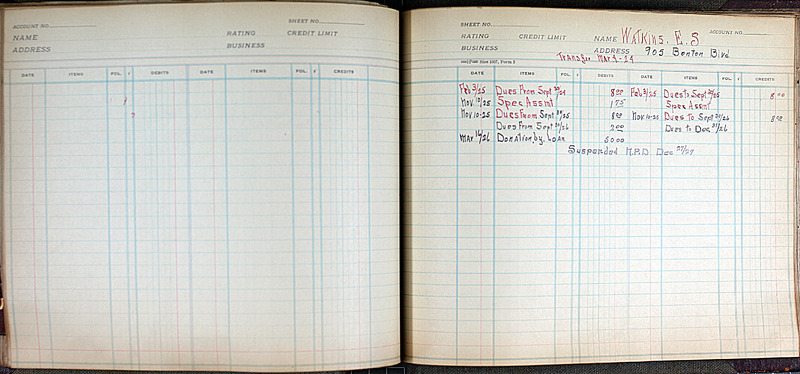 SHEET NO.
ACCOUNT NO.
NAME RATING CREDIT LIMIT
ADDRESS BUSINESS
DATE ITEMS FOL. √ DEBITS DATE ITEMS FOL. √ CREDITS
SHEET NO.
RATING CREDIT LIMIT NAME WATKINS. E. S ACCOUNT NO.
BUSINESS ADDRESS 905 Benton Blvd
Transfer Mar 1-24
DATE ITEMS FOL. √ DEBITS DATE ITEMS FOL. √ CREDITS
Feb 3/25 Dues From Sept 30/24 8.00 Feb 3/25 Dues to Sept 30/25 8.00
Nov 10/25 Spec Assmt 1.75 Spec Assmt
Nov 10-25 Dues From Sept 30/25 8.00 Nov 10-25 Dues To Sept 30/26 8.00
Dues From Sept 30/26 2.00 Dues to Dec 31/26
Mar 16/26 Donation by Loan 50.00
Suspended N.P.D Dec